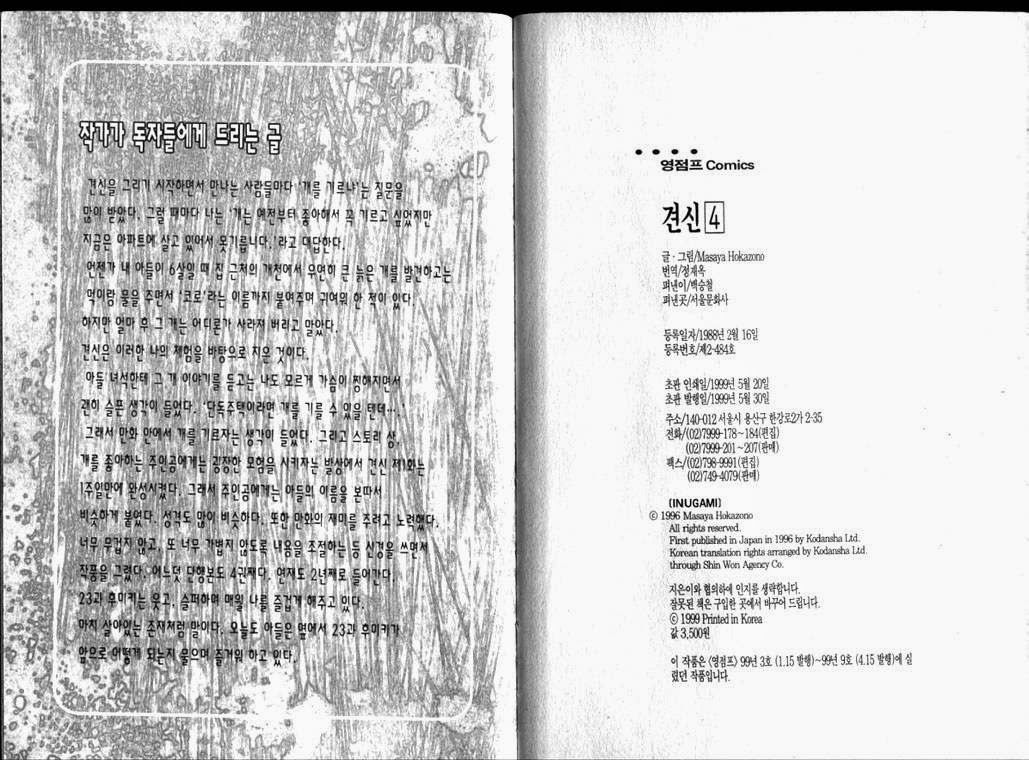 작가가 독자들에게 드리는 글
견신을 그리기 시작하면서 만나는 사람들마다 '개를 기르냐'는 질문을
많이 받았다. 그럴 때마다 나는 '개는 예전부터 좋아해서 꼭 기르고 싶었지만
지금은 아파트에 살고 있어서 못기릅니다.'라고 대답한다.
언젠가 내 아들이 6살일 때 집 근처의 개천에서 우연히 큰 늙은 개를 발견하고는
먹이랑 물을 주면서 '코로'라는 이름까지 붙여주며 귀여워 한 적이 있다.
하지만 얼마 후 그 개는 어디론가 사라져 버리고 말았다.
견신은 이러한 나의 체험을 바탕으로 지은 것이다.
아들 녀석한테 그 개 이야기를 듣고는 나도 모르게 가슴이 찡해지면서
괜히 슬픈 생각이 들었다. '단독주택이라면 개를 기를 수 있을 텐데….'
그래서 만화 안에서 개를 기르자는 생각이 들었다. 그리고 스토리 상,
개를 좋아하는 주인공에게는 굉장한 모험을 시키자는 발상에서 견신 제1화는
1주일만에 완성시켰다. 그래서 주인공에게는 아들의 이름을 본따서
비슷하게 붙였다. 성격도 많이 비슷하다. 또한 만화의 재미를 주려고 노력했다.
너무 무겁지 않고, 또 너무 가볍지 않도록 내용을 조절하는 등 신경을 쓰면서
작품을 그렸다. 어느덧 단행본도 4권째다. 연재도 2년째로 들어간다.
23과 후미키는 웃고, 슬퍼하며 매일 나를 즐겁게 해주고 있다.
마치 살아있는 존재처럼 말이다. 오늘도 아들은 옆에서 23과 후미키가
앞으로 어떻게 되는지 물으며 즐거워 하고 있다.
영점프 Comics
견신 4
글·그림/Masaya Hokazono
번역/정재옥
펴낸이/백승철
펴낸곳/서울문화사
등록일자/1988년 2월 16일
등록번호/제2-484호
초판 인쇄일/1999년 5월 20일
초판 발행일/1999년 5월 30일
주소/140-012 서울시 용산구 한강로2가 2-35
전화/(02)7999-178~184(편집)
(02)7999-201~207(판매)
팩스/(02)798-9991(편집)
(02)749-4079(판매)
〔INUGAMI〕
© 1996 Masaya Hokazono
All rights reserved.
First published in Japan in 1996 by Kodansha Ltd.
Korean translation rights arranged by Kodansha Ltd.
through Shin Won Agency Co.
지은이와 협의하에 인지를 생략합니다.
잘못된 책은 구입한 곳에서 바꾸어 드립니다.
© 1999 Printed in Korea
값 3,500원
이 작품은 〈영점프〉 99년 3호 (1.15 발행)~99년 9호 (4.15 발행)에 실
렸던 작품입니다.